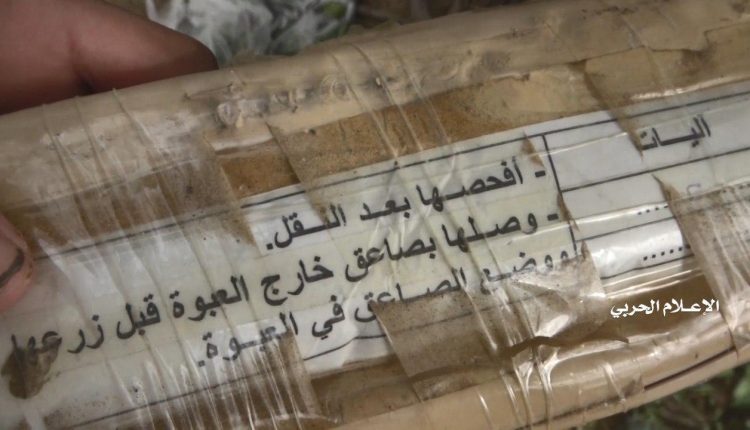 اليات
- أفحصها بعد النقل.
- وصلها بصاعق خارج العبوة قبل زرعها
ووضع الصاعق في العبوة.
الإعلام الحربي